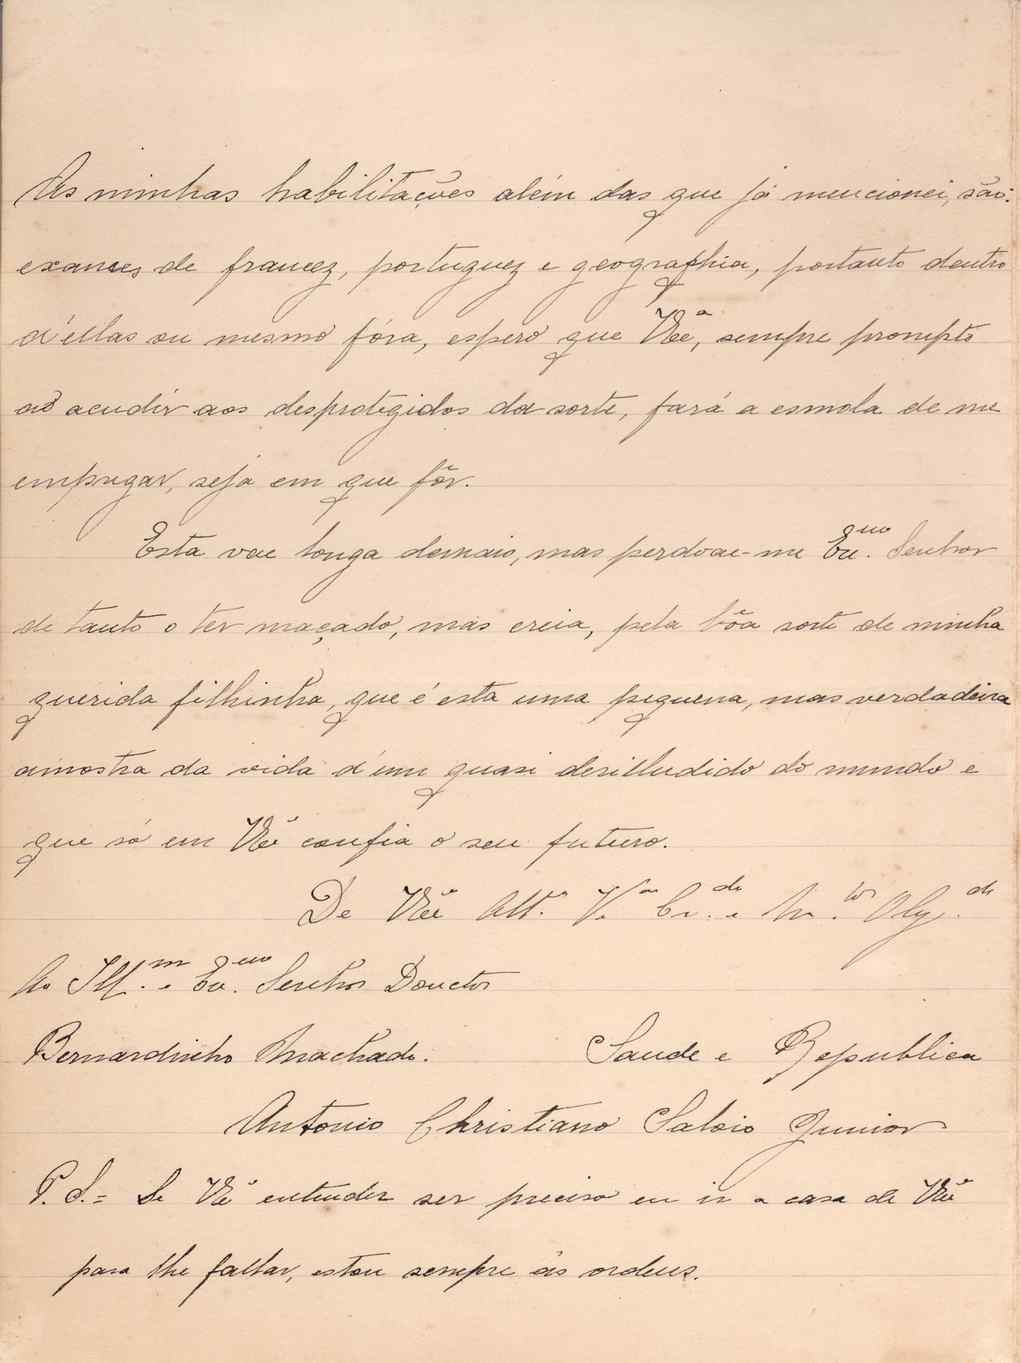 As minhas habilitações além das que já mencionei, são:
exames de francez, portuguez e geographia, portanto dentro
d'ellas ou mesmo fóra, espero que V.Ex.ª, sempre prompto
a acudir aos desprotegidos da sorte, fará a esmola de me
empregar, seja em que fôr.
Esta vae longa demais, mas perdoae-me Ex.mo Senhor
de tanto o ter maçado, mas creia, pela bôa sorte de minha
querida filhinha, que é esta uma pequena, mas verdadeira
amostra da vida d'um quasi desilludido do mundo e
que só em V.Ex.ª confia o seu futuro.
De V.Ex.ª Att.º V.or Cr.do e M.to Obg.do
Ao Ill.mo e Ex.mo Senhor Douctor
Bernardinho Machado. Saude e Republica
Antonio Christiano Saloio Junior
P.S. = Se V.Ex.ª entender ser preciso eu ir a casa de V.Ex.ª
para lhe fallar, estou sempre ás ordens.